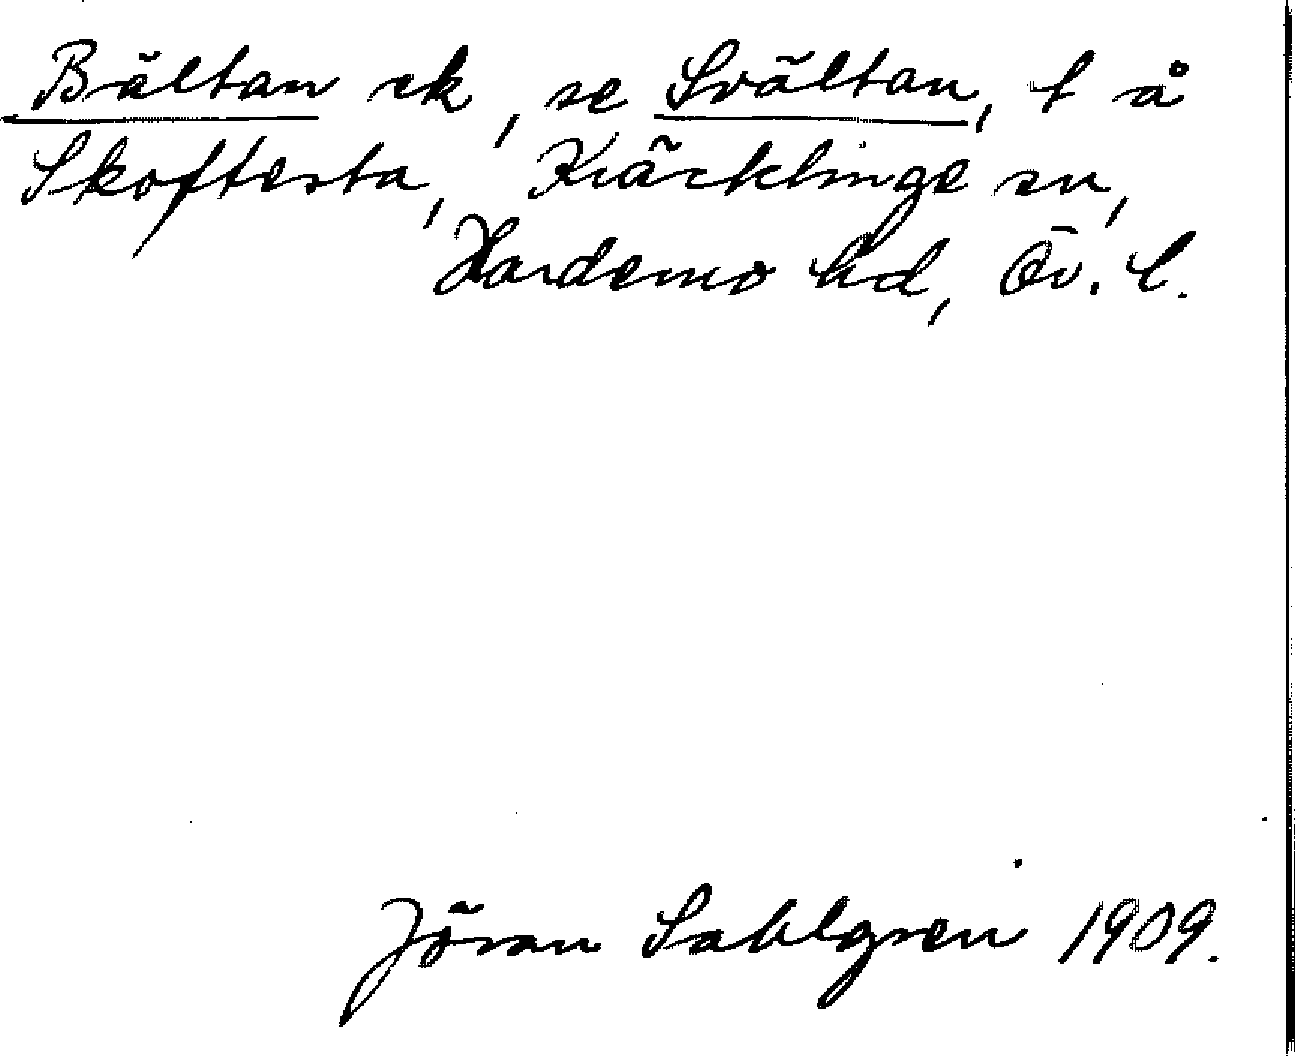 Bältan ek, se Svältan, t å
Skoftesta, Kräcklinge sn,
Hardemo hd, Ör. l.
Jöran Sahlgren 1909.